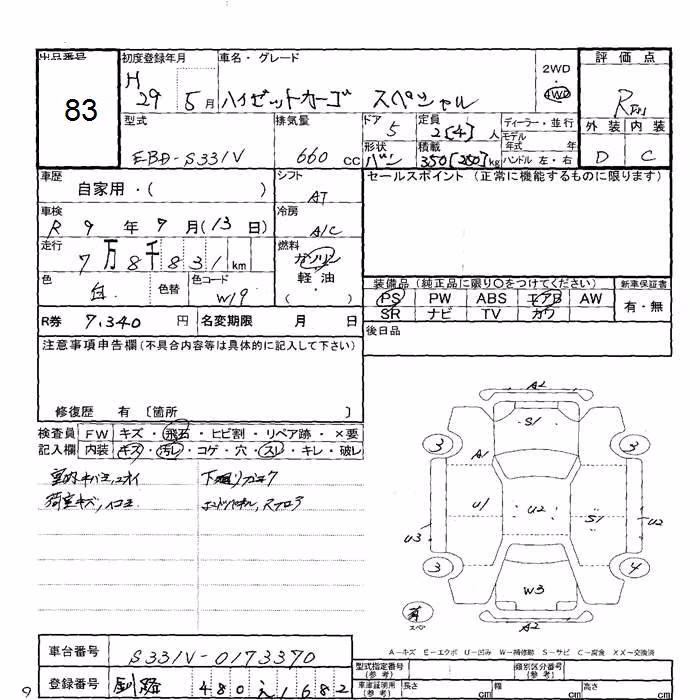 出品番号
83
初度登録年月
H 29 5月
車名・グレード
ハイゼットカーゴ スペシャル
2WD
4WD
評価点
R
外装 内装
D C
型式
EBD-S331V
排気量
660 cc
ドア
5
形状
バン
定員
2[4]人
積載
350[250]kg
ディーラー・並行
モデル年式 年式
ハンドル 左・右
車歴
自家用・( )
シフト
AT
セールスポイント (正常に機能するものに限ります)
車検
R 9年7月(13日)
冷房
A/C
走行
7万8千831km
燃料
ガソリン
軽油
( )
色
白
色替
色コード
W19
装備品 (純正品に限り○をつけてください)
新車保証書
PS PW ABS エアB AW
SR ナビ TV カワ
有・無
R券 7,340円
名変期限 月 日
後日品
注意事項申告欄(不具合内容等は具体的に記入して下さい)
修復歴 有 〔箇所 〕
検査員記入欄
FW キズ・飛石・ヒビ割・リペア跡・×要
内装 キズ・汚レ・コゲ・穴・スレ・キレ・破レ
下廻りガキク
A2
S1
3
3
A1
U1
U2
S1
U3
U2
3
4
W3
A2
スペア
A―キズ E―エクボ U―凹み W―補修跡 S―サビ C―腐食 XX―交換済
車台番号
S331V-0173370
登録番号
釧路 480 え 1682
型式指定番号(参考)
類別区分番号(参考)
車庫証明用(参考) 長さ cm 幅 cm 高さ cm
9